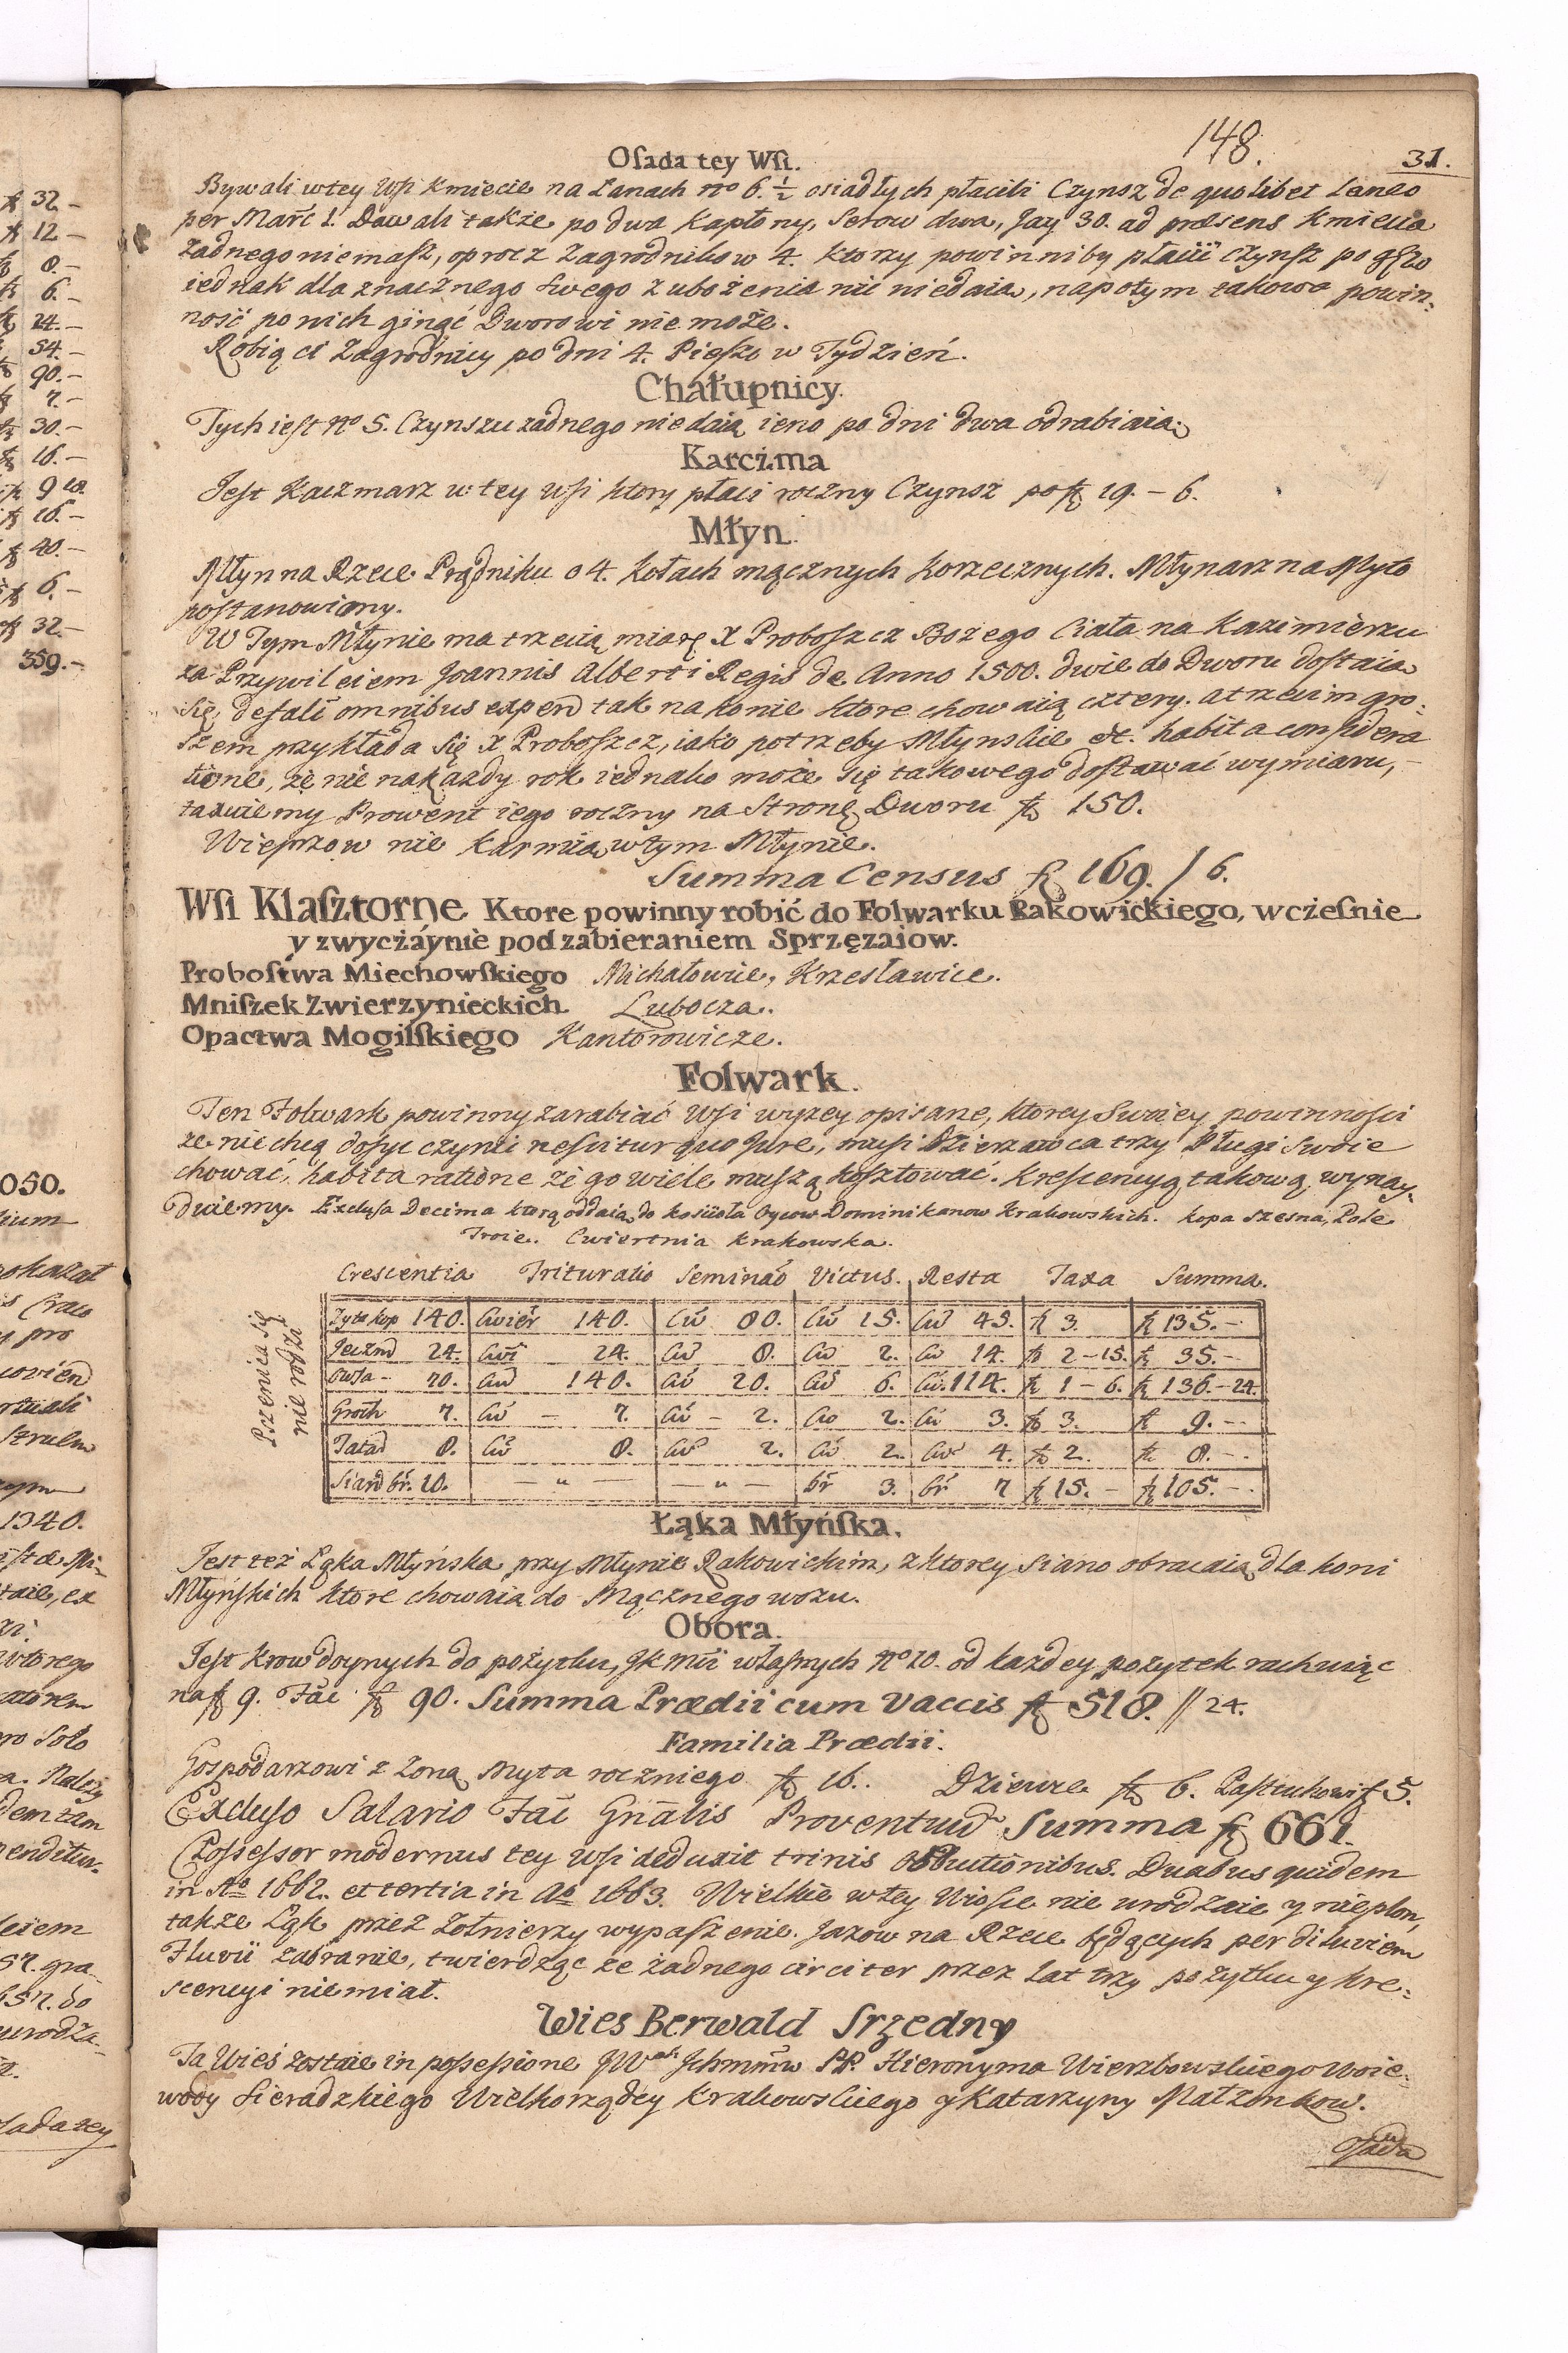 148.
31.
Osada tey Wsi.
Bywali w tey Wsi Kmiecie na Łanach no 6. ½ osiadłych płacili Czynsz de quolibet Laneo
per Marc 1. Dawali także po dwa Kapłony, Serow dwa, Jay 30. ad præsens Kmiecia
żadnego niemasz, oprocz Zagrodnikow 4. ktorzy powinniby płacić czynsz po
iednak dla znacznego swego zubożenia nic niedaią, napotym takowa powin:
ność po nich ginąć Dworowi nie może.
Robią ci Zagrodnicy po dni 4. Pieszo w Tydzień.
Chałupnicy.
Tych iest No 5. Czynszu żadnego nie daią ieno po dni dwa odrabiaią.
Karczma
Jest Kaczmarz w tey wsi ktory płaci roczny Czynsz po fl 19. – 6.
Młyn.
Młyn na Rzece Prądniku o 4. Kołach mącznych Korzecznych. Młynarz na Myto
postanowiony.
W Tym Młynie ma trzecią miarę X Proboszcz Bożego Ciała na Kazimierzu
za Przywileiem Joannis Alberti Regis de Anno 1500. dwie do Dworu dostaią
się, defalc omnibus expens tak na konie ktore chowaią cztery. a trzecim gro:
szem przykłada się X Proboszcz, iako potrzeby Młynskie etc. habita considera
tione, że nie na każdy rok iednako może się takowego dostawać wymiaru, –
taxuiemy Prowent iego roczny na Stronę Dworu fl 150.
Wieprzow nie karmią w tym Młynie.
Summa Census fl 169. / 6.
Wsi Klasztorne Ktore powinny robić do Folwarku Rakowickiego, wcześnie
y zwyczáynie pod zabieraniem Sprzęzaiow.
Probostwa Miechowskiego Michałowice, Krzesławice.
Mniszek Zwierzynieckich Lubocza.
Opactwa Mogilskiego Kantorowicze.
Folwark.
Ten Folwark powinny zarabiać Wsi wyżey opisane, ktorey Swoiey powinności
że nie chcą dosyc czynić nescitur quo Jure, musi Dzierzawca trzy Pługi Swoie
chować, habita ratione że go wiele muszą kosztować. Krescencyą takową wynay.
duiemy. Exclusa Decima ktorą oddaią do Koscioła Oycow Dominikanow Krakowskich. kopa szesna, Pole
Troie. Cwiertnia Krakowska.
Crescentia Trituratio Seminao Victus. Resta Taxa Summa.
Pszenica się
nie rodza
Zyta kop 140. Cwier 140. Cw 80. Cw 15. Cw 45. fl 3. fl 135. –
Jeczm 24. Cwi 24. Cw 8. Cw 2. Cw 14. fl 2 – 15. fl 35. –
Owsa – 70. Cw 140. Cw 20. Cw 6. Cw. 114. fl 1 – 6. fl 136. – 24.
Groch 7. Cw – 7. Cw – 2. Cw 2. Cw 3. fl 3. fl 9. –
Tatar 8. Cw 8. Cw 2. Cw 2. Cw 4. fl 2. fl 8. –
Siana br. 10. — " — — " — br 3. br 7 fl 15. – fl 105. –
Łąka Młyńska.
Jest też Łąka Młyńska przy Młynie Rakowickim, z ktorey Siano obracaią dla koni
Młyńskich ktore chowaią do Mącznego wozu.
Obora.
Jest Krow doynych do pożytku, JKMci własnych No 10. od każdey pożytek rachuiąc
na fl 9. Faci fl 90. Summa Prædii cum Vaccis fl 518. // 24.
Familia Prædii.
Gospodarzowi z Zoną Myta roczniego fl 16. Dziewce fl 6. Pastuchowi fl 5.
Excluso Salario Faci Gnalis Proventuum Summa fl 661.
Possessor modernus tey wsi deduxit trinis Obductionibus. Duabus quidem
in Ao 1662. et tertia in Ao 1663. Wielkie w tey Wiosce nie urodzaie y nieplon,
także Łąk przez Zołnierzy wypaszenie. Jazow na Rzece będących per diluviem
Fluvii zabranie, twierdząc że żadnego circiter przez Lat trzy pożytku y kre:
scencyi nie miał.
Wies Berwald Srzedny
Ta Wieś zostaie in possessione JW Jchmmw PP. Hieronyma Wierzbowskiego Woie:
wody Sieradzkiego Wielkorządcy Krakowskiego y Katarzyny Małzonkow.
Osada